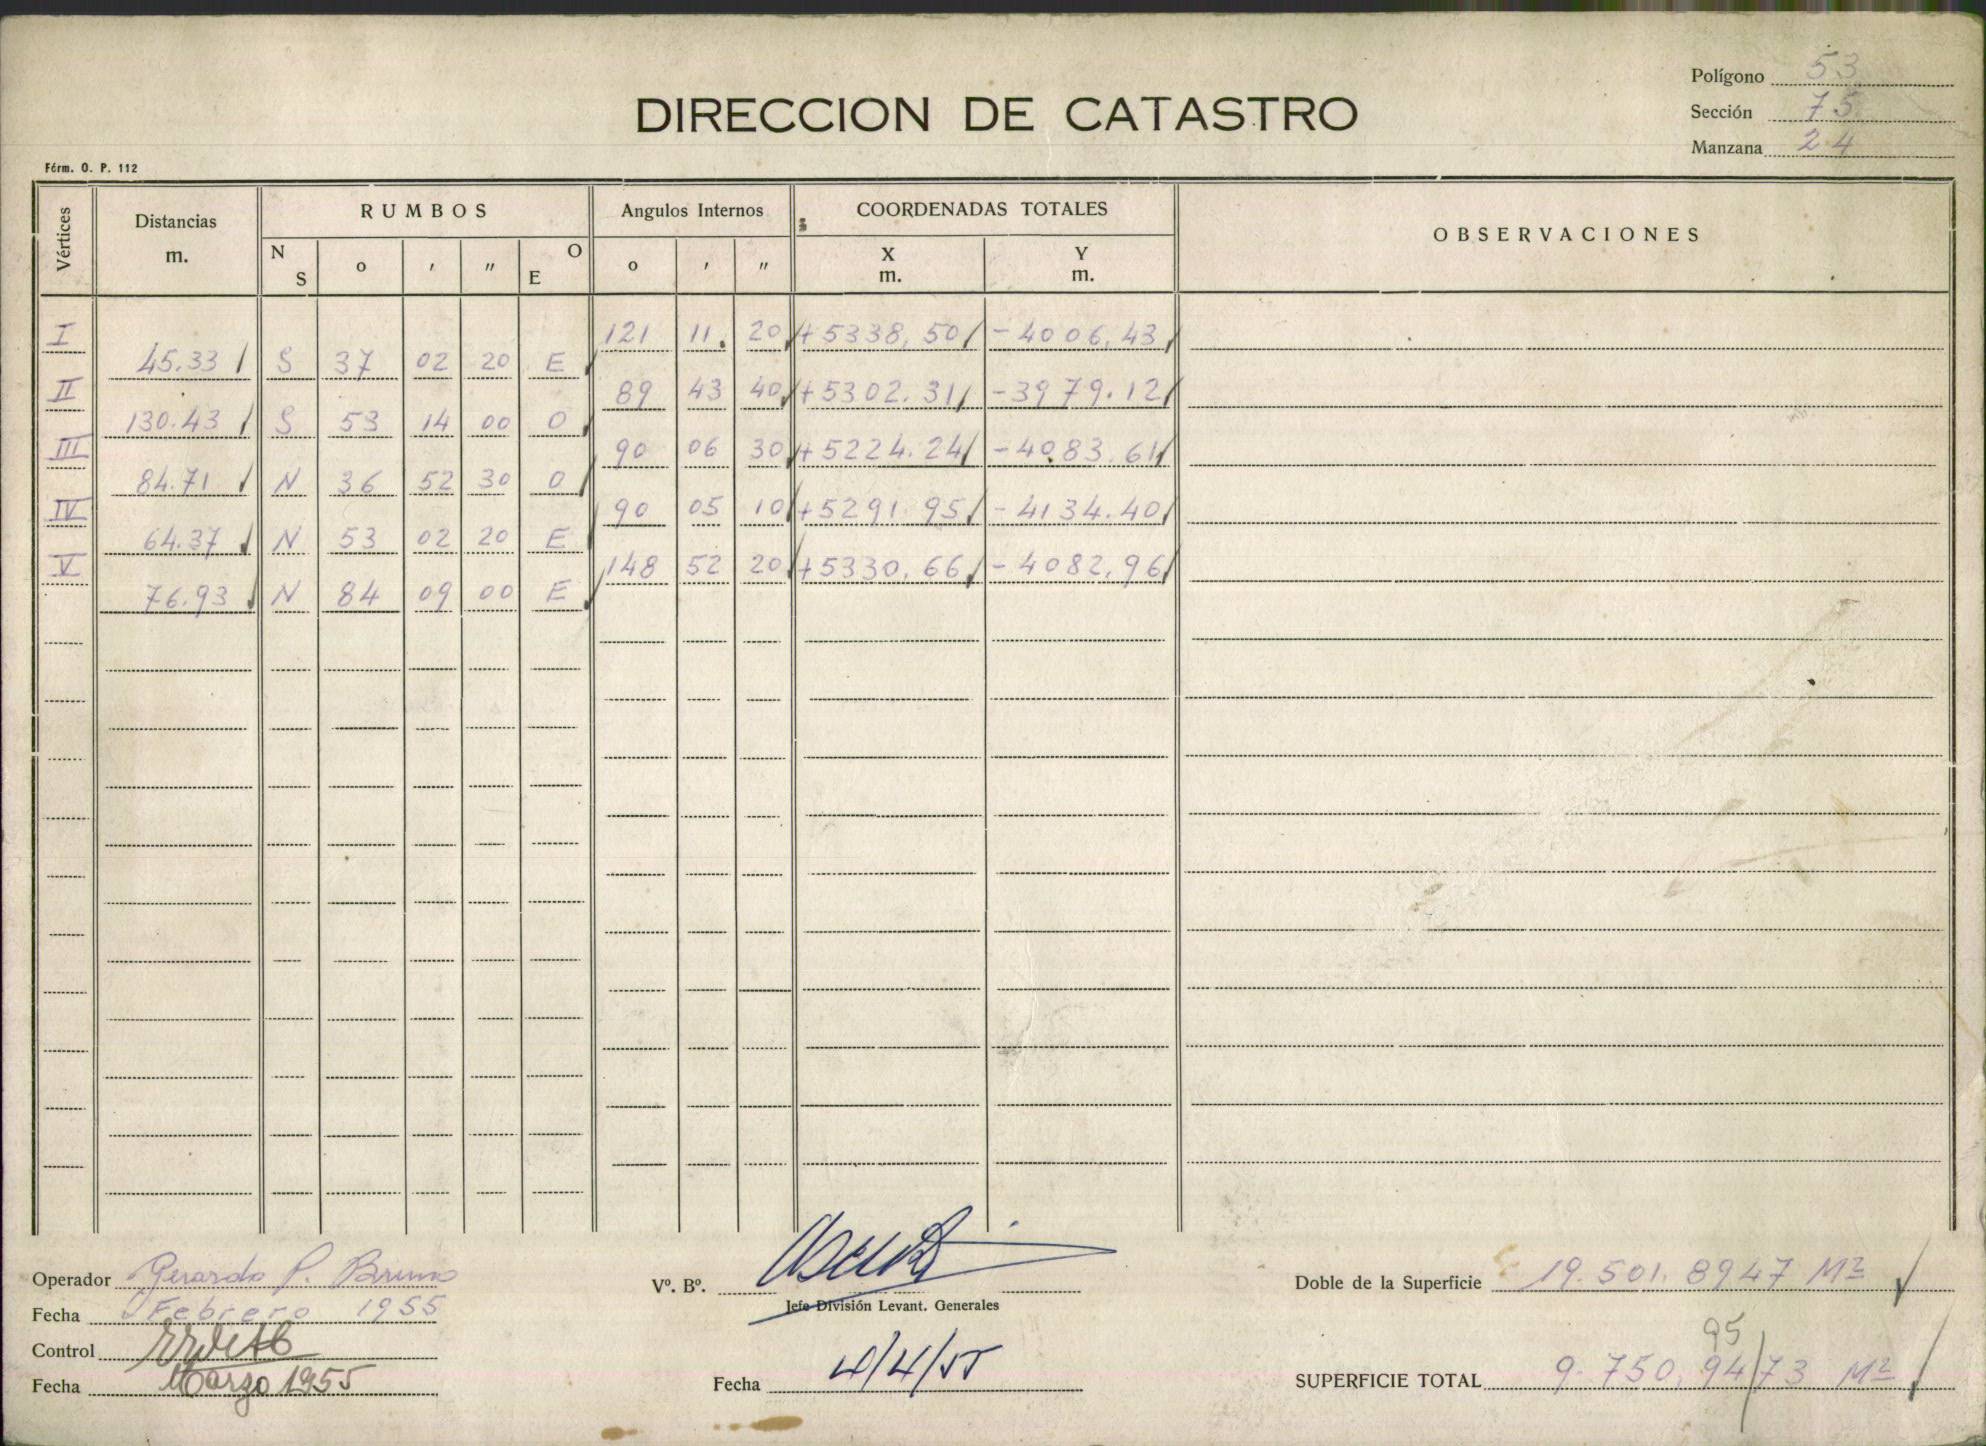 Polígono 53
DIRECCION DE CATASTRO
Sección 75
Manzana 24
Fórm. O. P. 112
Vértices Distancias m. RUMBOS Angulos Internos COORDENADAS TOTALES OBSERVACIONES
N S o ′ ″ O E o ′ ″ X m. Y m.
I 121 11 20 +5338,50 -4006,43
45.33 S 37 02 20 E
II 89 43 40 +5302.31 -3979.12
130.43 S 53 14 00 O
III 90 06 30 +5224.24 -4083.61
84.71 N 36 52 30 O
IV 90 05 10 +5291.95 -4134.40
64.37 N 53 02 20 E
V 148 52 20 +5330,66 -4082,96
76.93 N 84 09 00 E
Operador Gerardo P. Bruno
Fecha Febrero 1955
Control
Fecha Marzo 1955
Vº. Bº.
Jefe División Levant. Generales
Fecha 4/55
Doble de la Superficie 19.501.8947 M²
95
SUPERFICIE TOTAL 9.750,94/73 M²